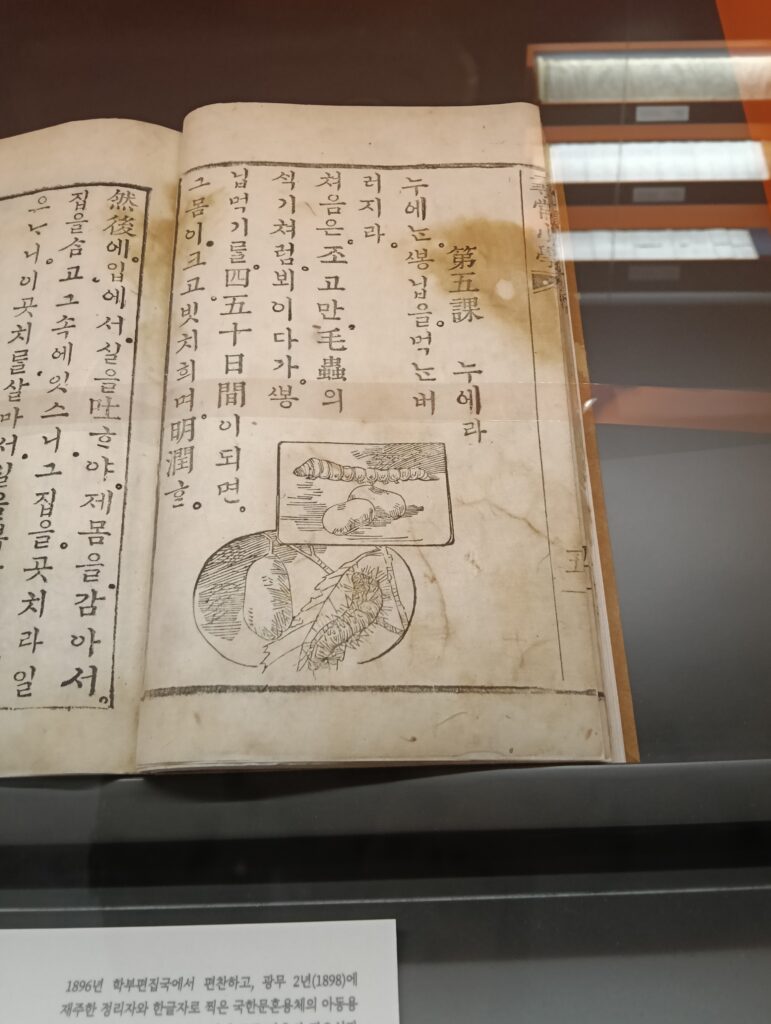 尋常小學
第五課 누에라
누에ᄂᆞᆫ。ᄲᅩᆼ닙을。먹ᄂᆞᆫ버
러지라。
처음은。조고만毛蟲의
석기쳐럼。뵈이다가。ᄲᅩᆼ
닙먹기를。四五十日間이되면。
그몸이크고。빗치희며。明潤ᄒᆞᆫ。
然後에。입에서。실을吐ᄒᆞ야。제몸을감아서。
집을삼고。그속에잇스니。그집을。곳치라일
으ᄂᆞ니。이곳치를살마서
1896년 학부편집국에서 편찬하고, 광무 2년(1898)에
재주한 정리자와 한글자로 찍은 국한문혼용체의 아동용